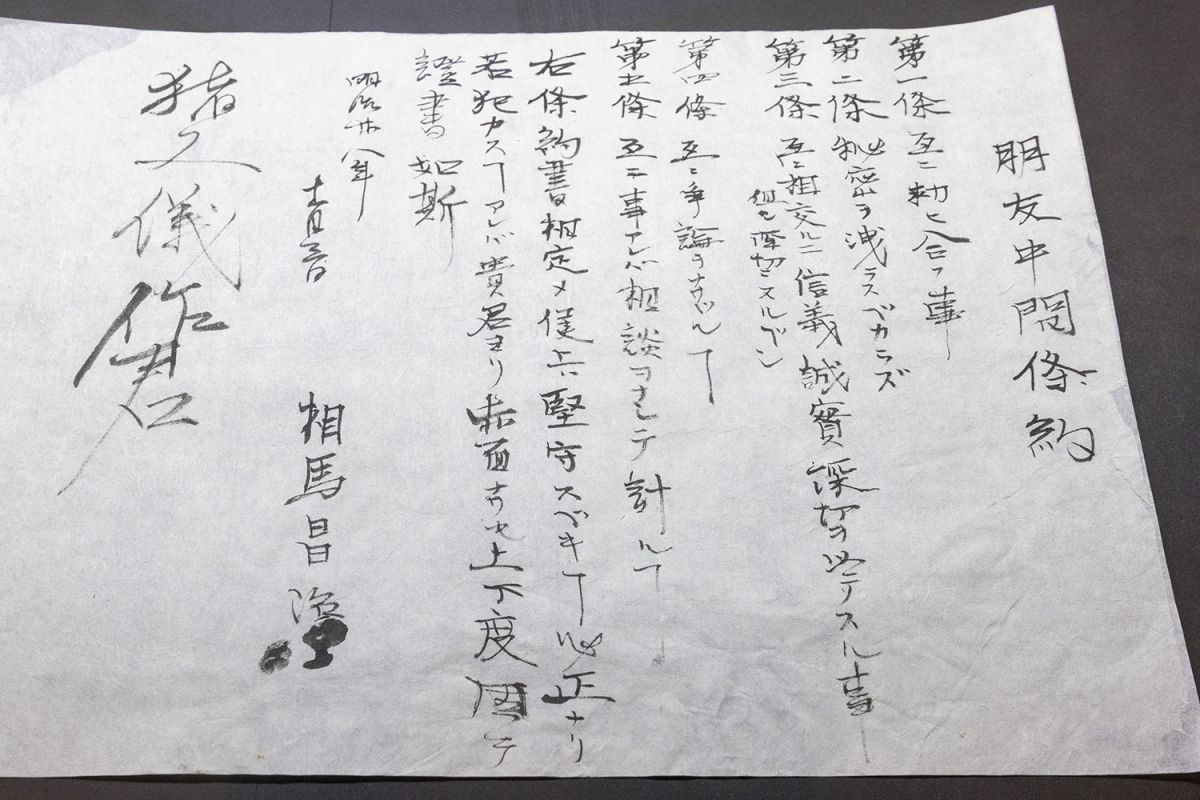 朋友中間條約
第一條 互ニ勅ヒ合フ事
第二條 秘密ヲ洩ラスベカラズ
第三條 互ニ相交ルニ信義誠實深切ヲ以テスル事
但シ深切ニスルベシ
第四條 互ニ爭論ヲナザルヿ
第五條 互ニ事アレバ相談ヲナシテ計ルヿ
右條約書相定メ候上ハ堅守スベキヿ必正ナリ
若犯カスヿアレバ貴君ヨリ赤面ナサセ上下度 テ
證書如斯
明治廿八年
相馬昌治
猪又儀作君